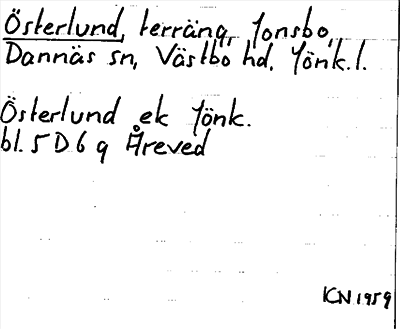 Österlund, terräng, Jonsbo,
Dannäs sn, Västbo hd. Jönk.l.
Österlund ek Jönk.
bl. 5 D 6 g Åreved
KN 1959